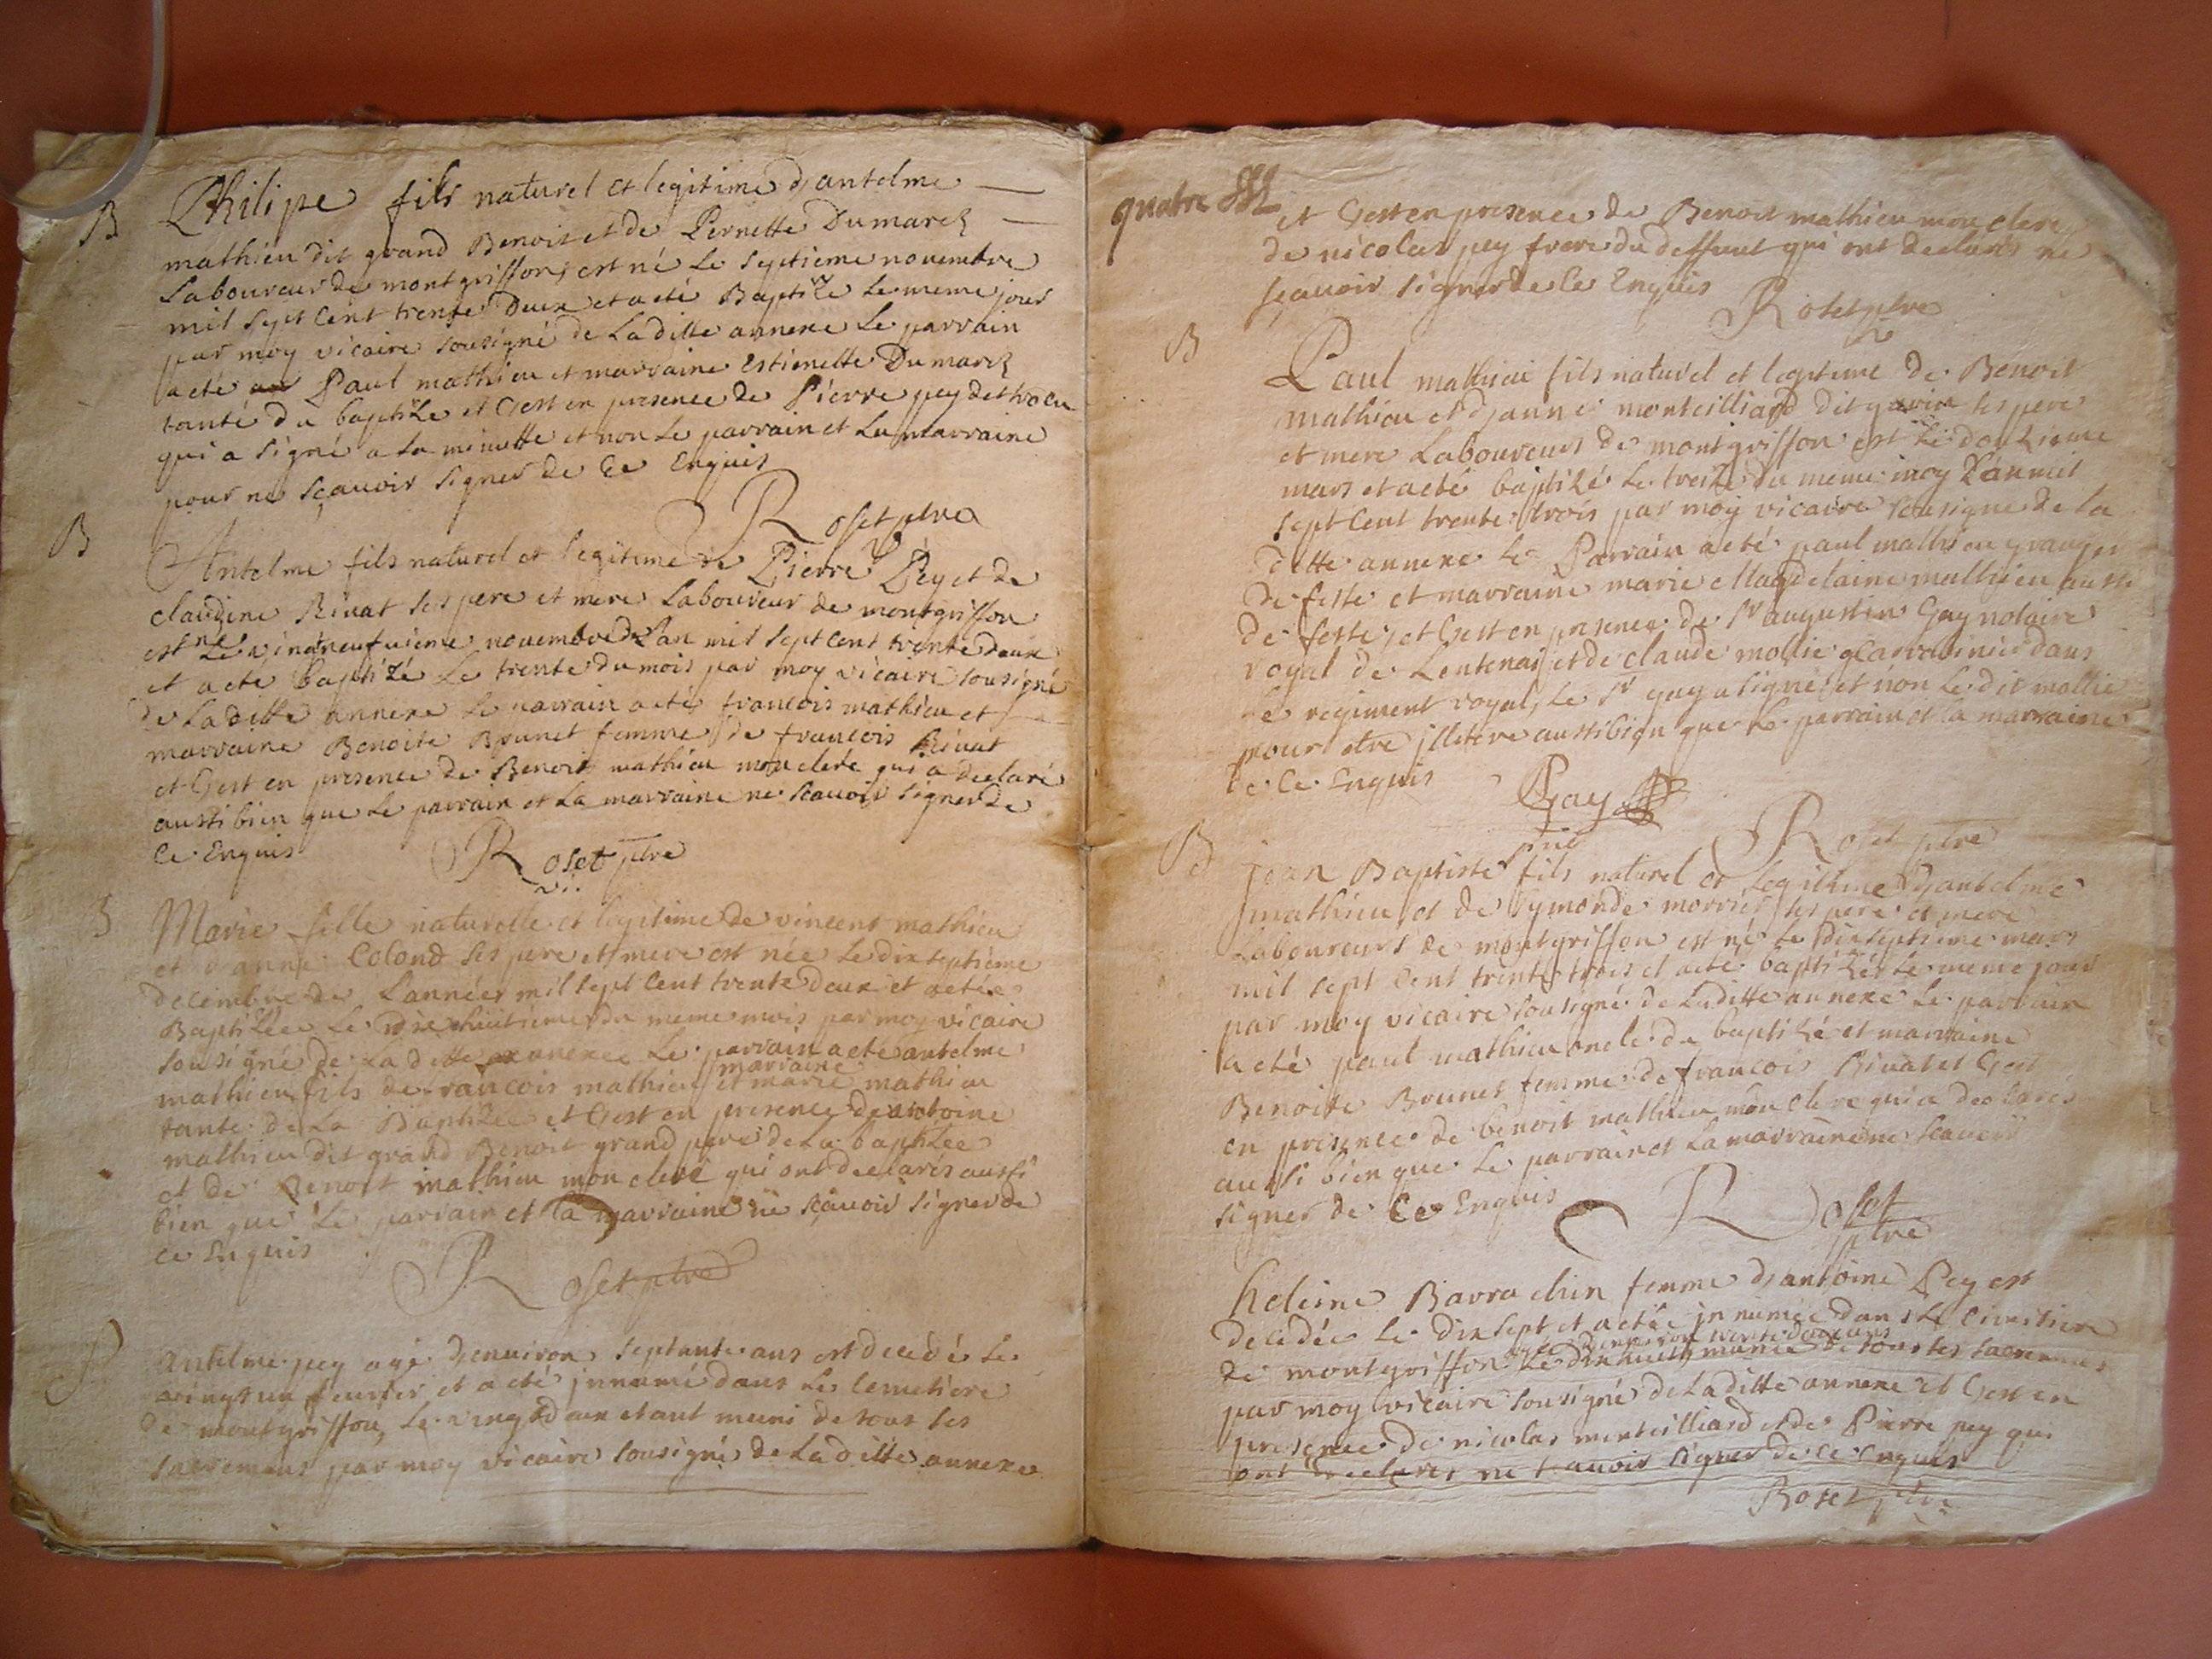 B Philipe fils naturel et legitime d'antelme
mathieu dit grand Benoit et de Pernette Dumarch
Laboureur de montgriffon, est né Le septieme novembre
mil sept Cent trente Deux et a eté Baptizé Le meme jour
par moy vicaire sousigné de Laditte annexe Le parrain
a eté Paul mathieu et marraine Estienette Dumarch
tante du baptizé et C'est en presence de Pierre pey
qui a signé a La minutte et non Le parrain et La marraine
pour ne sçauoir signer de Ce Enquis
Roset ptre
B Antelme fils naturel et legitime de Pierre Pey et de
claudine Riuat ses pere et mere Laboureur de montgriffon
est né Le vingneufuieme novembre de L'an mil sept Cent trente deux
et a eté baptizé Le trente du mois par moy vicaire sousigné
de Laditte annexe Le parrain a eté francois mathieu et
marraine Benoite Brunet femme de francois Riuat
et C'est en presence de Benoit mathieu mon clerc qui a declaré
aussi bien que Le parrain et La marraine ne scauoir signer de
Ce Enquis
Roset ptre
Marie fille naturelle et legitime de vincent mathieu
et d'anne Colond ses pere et mere est née Le dixseptième
decembre de L'année mil sept Cent trente deux et a eté
Baptizée Le dix huitieme du meme mois par moy vicaire
sousigné de La ditte annexe Le parrain a eté antelme
mathieu fils de francois mathieu et marraine marie mathieu
tante de La Baptizée et C'est en presence d'antoine
mathieu dit grand Benoit grand pere de La baptizée
et de Benoit mathieu mon clerc qui ont declarés aussi
bien que Le parrain et la marraine ne sçauoir signer de
ce Enquis
Roset ptre
Antelme pey agé d'enuiron septante ans est decedé Le
vingt un feurier et a eté innumé dans Le Cemetiere
de montgriffon, Le vingt deux etant muni de tous les
sacremens par moy vicaire sousigné de Laditte annexe
quatre
et C'est en presence de Benoit mathieu mon clerc,
de nicolas pey frere du deffunt qui ont declarés ne
sçauoir signer de Ce Enquis
Roset ptre
B Paul mathieu fils naturel et legitime de Benoit
mathieu et d'janne monteilliard dit ses pere
et mere Laboureurs de montgriffon est né Le douzieme
mars et a eté baptizé Le treize du meme moy L'an mil
sept Cent trente trois par moy vicaire sousigné de La
ditte annexe Le Parrain a eté paul mathieu
de feste et marraine marie Magdelaine mathieu aussi
de feste, et C'est en presence de Sr augustin Gay notaire
royal de Lentenai et de claude mollie Carrabinier dans
Le regiment royal, Le Sr gay a signé et non Le dit mollie
pour etre jlletere aussi bien que Le parrain et La marraine
de Ce Enquis
Gay
Roset ptre
B jean Baptiste fils naturel et Legitime d'antelme
mathieu et de Symonde morrier ses pere et mere
Laboureurs de montgriffon est né Le dixseptieme mars
mil sept Cent trente trois et a eté baptizé Le meme jour
par moy vicaire sousigné de Laditte annexe Le parrain
a eté paul mathieu oncle du baptizé et marraine
Benoite Brunet femme de francois Riuat et C'est
en presence de benoit mathieu mon clerc qui a declarés
aussi bien que Le parrain et La marraine ne scauoir
signer de Ce Enquis
Roset
ptre
heleine Barrachin femme d'antoine Pey est
decedée Le dixsept et a eté innumée dans Le Cimitiere
agée d'enuiron trente deux ans
de montgriffon Le dixhuict munie de tous les sacremens
par moy vicaire sousigné de Laditte annexe et C'est en
presence de nicolas monteilliard et de Pierre pey qui
ont declarés ne scauoir signer de ce enquis
Roset ptre